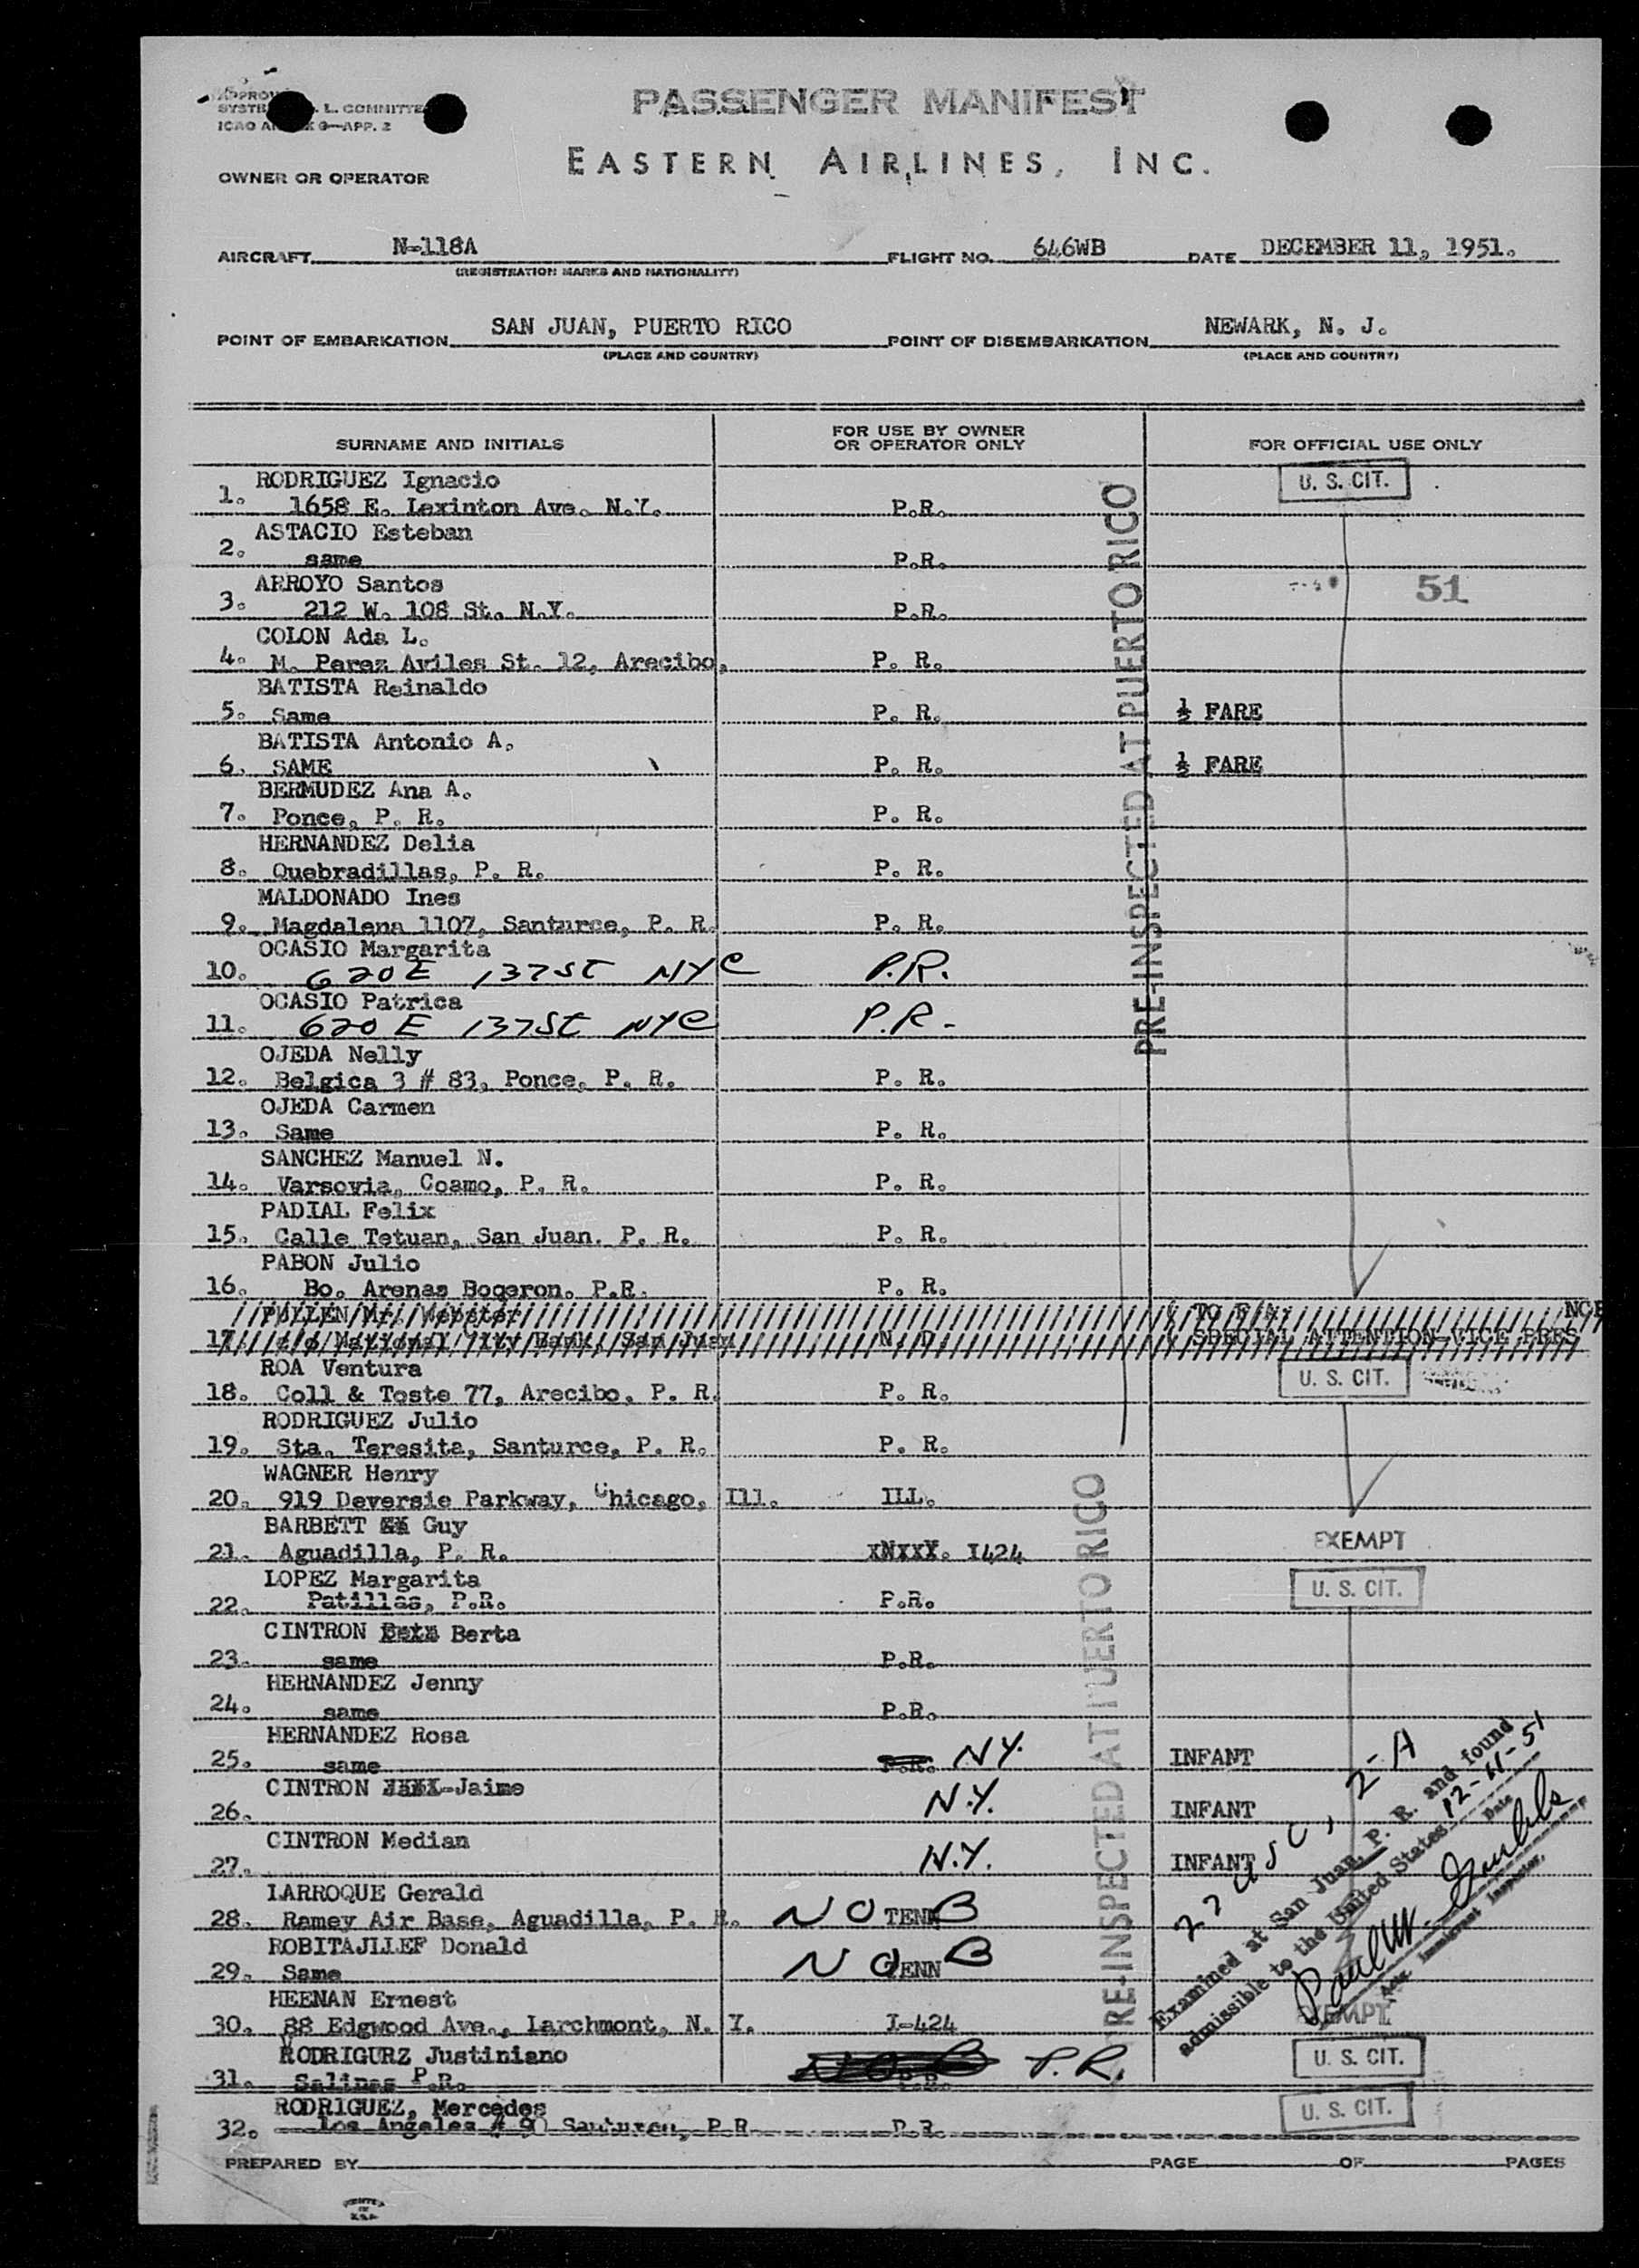 PASSENGER MANIFEST
L. COMMITTE
ICAO 9—APP. 2
EASTERN AIRLINES, INC.
OWNER OR OPERATOR
AIRCRAFT N-118A FLIGHT NO. 646WB DATE DECEMBER 11, 1951.
(REGISTRATION MARKS AND NATIONALITY)
SAN JUAN, PUERTO RICO NEWARK, N. J.
POINT OF EMBARKATION POINT OF DISEMBARKATION
(PLACE AND COUNTRY) (PLACE AND COUNTRY)
SURNAME AND INITIALS FOR USE BY OWNER OR OPERATOR ONLY FOR OFFICIAL USE ONLY
RODRIGUEZ Ignacio U. S. CIT.
1. 1658 E. Lexinton Ave. N.Y. P.R.
ASTACIO Esteban
2. same P.R.
ARROYO Santos 51
3. 212 W. 108 St. N.Y. P.R.
COLON Ada L.
4. M. Perez Aviles St. 12, Arecibo, P. R.
BATISTA Reinaldo
5. Same P. R. ½ FARE
BATISTA Antonio A.
6. SAME P. R. ½ FARE
BERMUDEZ Ana A.
7. Ponce, P. R. P. R.
HERNANDEZ Delia
8. Quebradillas, P. R. P. R.
MALDONADO Ines
9. Magdalena 1107, Santurce, P. R. P. R.
OCASIO Margarita
10. 620 E 137 ST NYC P.R.
OCASIO Patrica
11. 620 E 137 ST NYC P.R-
PRE-INSPECTED AT PUERTO RICO
OJEDA Nelly
12. Belgica 3 # 83, Ponce, P. R. P. R.
OJEDA Carmen
13. Same P. R.
SANCHEZ Manuel N.
14. Varsovia, Coamo, P. R. P. R.
PADIAL Felix
15. Calle Tetuan, San Juan. P. R. P. R.
PABON Julio
16. Bo. Arenas Boqeron. P.R. P. R.
PULLEN Mr. Webster
17. c/o National City Bank, San Juan SPECIAL ATTENTION-VICE PRES
ROA Ventura U. S. CIT.
18. Coll & Toste 77, Arecibo, P. R. P. R.
RODRIGUEZ Julio
19. Sta. Teresita, Santurce, P. R. P. R.
WAGNER Henry
20. 919 Deversie Parkway, Chicago, Ill. ILL.
BARBETT Guy EXEMPT
21. Aguadilla, P. R. I424
LOPEZ Margarita U. S. CIT.
22. Patillas, P.R. P.R.
CINTRON Berta
23. same P.R.
HERNANDEZ Jenny
24. same P.R.
HERNANDEZ Rosa
25. same P.R. NY. INFANT
CINTRON Jaime
26. N.Y. INFANT
CINTRON Median
27. N.Y. INFANT
27 USC, 2-A
Examined at San Juan, P. R. and found
admissible to the United States 12-11-51
Date
Paul W.
Immigrant Inspector.
LARROQUE Gerald
28. Ramey Air Base, Aguadilla, P. R. NO TENN B
ROBITAJLLEF Donald
29. Same NO ENN B
HEENAN Ernest EXEMPT
30. 88 Edgwood Ave., Larchmont, N. Y. I-424
PRE-INSPECTED AT PUERTO RICO
RODRIGURZ Justiniano U. S. CIT.
31. Salinas P.R. P.R.
RODRIGUEZ, Mercedes U. S. CIT.
32. Los Angeles # 90 Santurce, P.R. P.R.
PREPARED BY PAGE OF PAGES